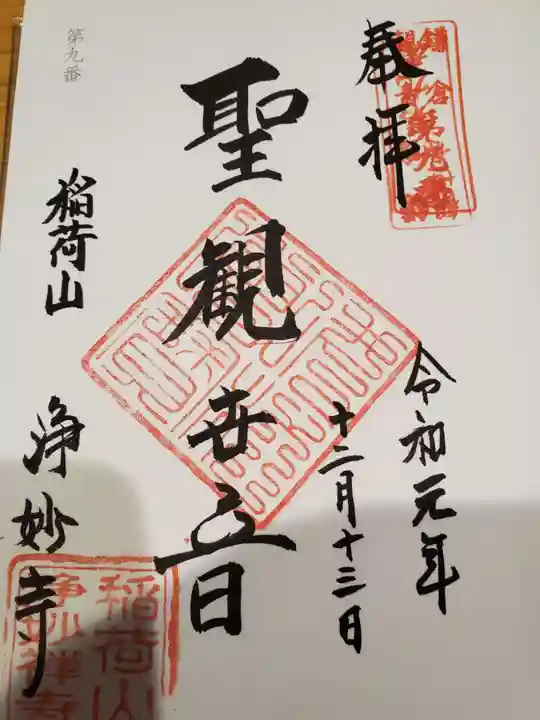 奉拝
令和元年
十二月十三日
聖観世音
稲荷山
浄妙寺
第九番
鎌倉
第九番
稲荷山
浄妙禅寺